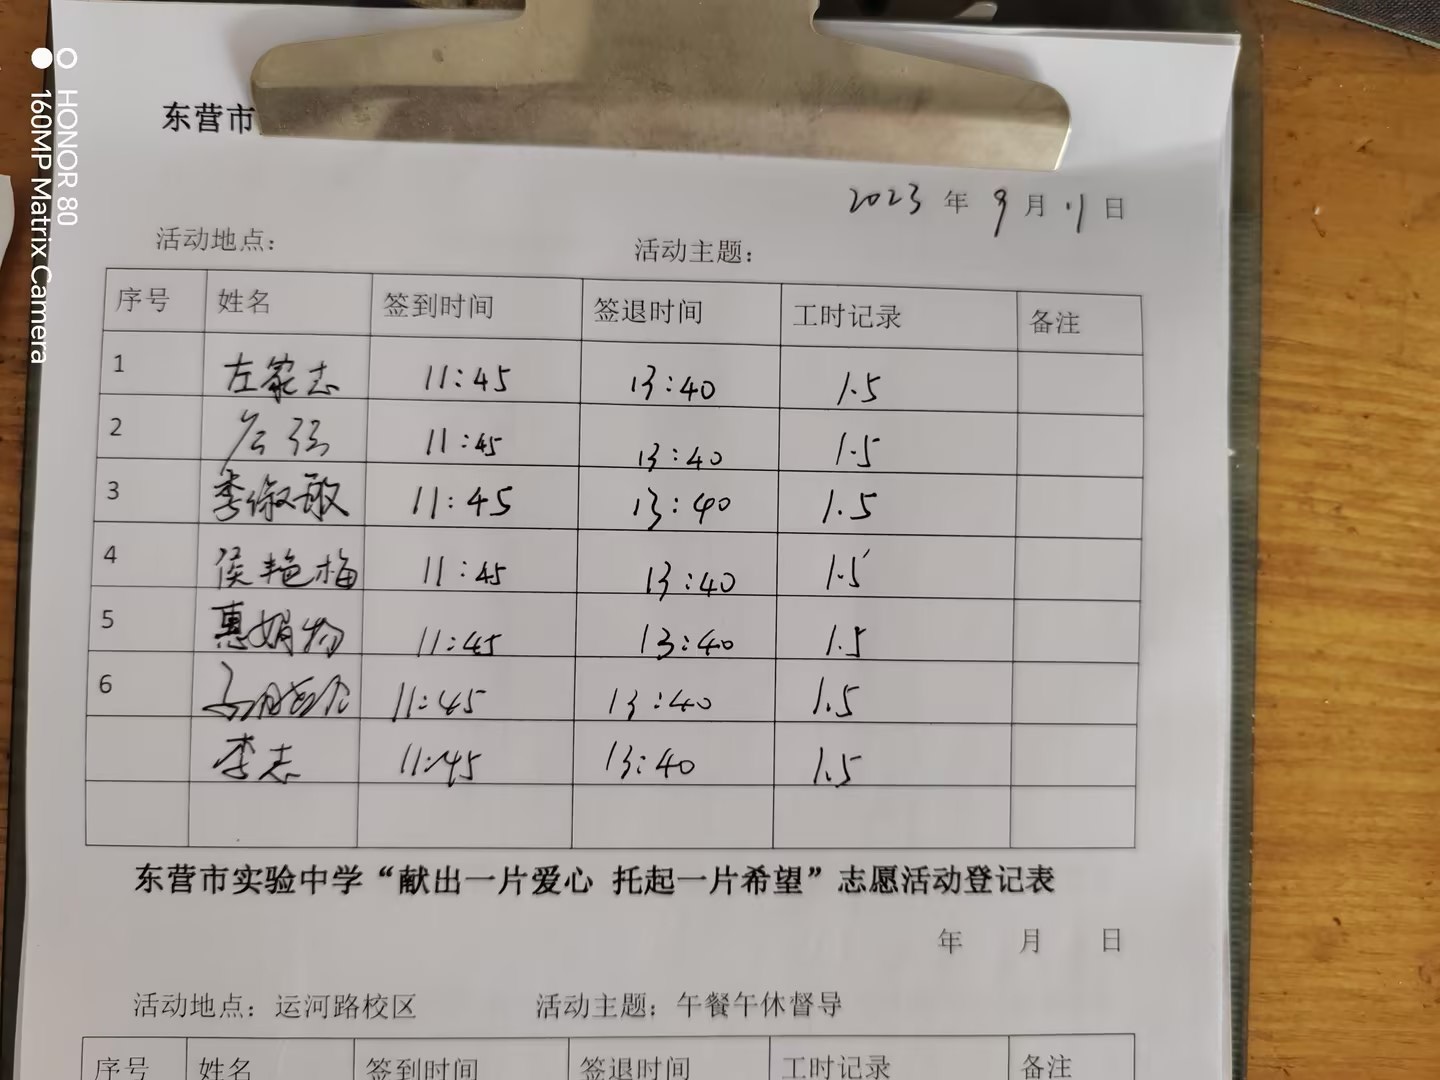 HONOR 80
160MP Matrix Camera
东营市
2023 年 9 月 11 日
活动地点： 活动主题：
序号 姓名 签到时间 签退时间 工时记录 备注
1 左家志 11:45 13:40 1.5
2 11:45 13:40 1.5
3 李俶敏 11:45 13:40 1.5
4 侯艳梅 11:45 13:40 1.5
5 惠娟 11:45 13:40 1.5
6 11:45 13:40 1.5
李志 11:45 13:40 1.5
东营市实验中学“献出一片爱心 托起一片希望”志愿活动登记表
年 月 日
活动地点：运河路校区 活动主题：午餐午休督导
序号 姓名 签到时间 签退时间 工时记录 备注